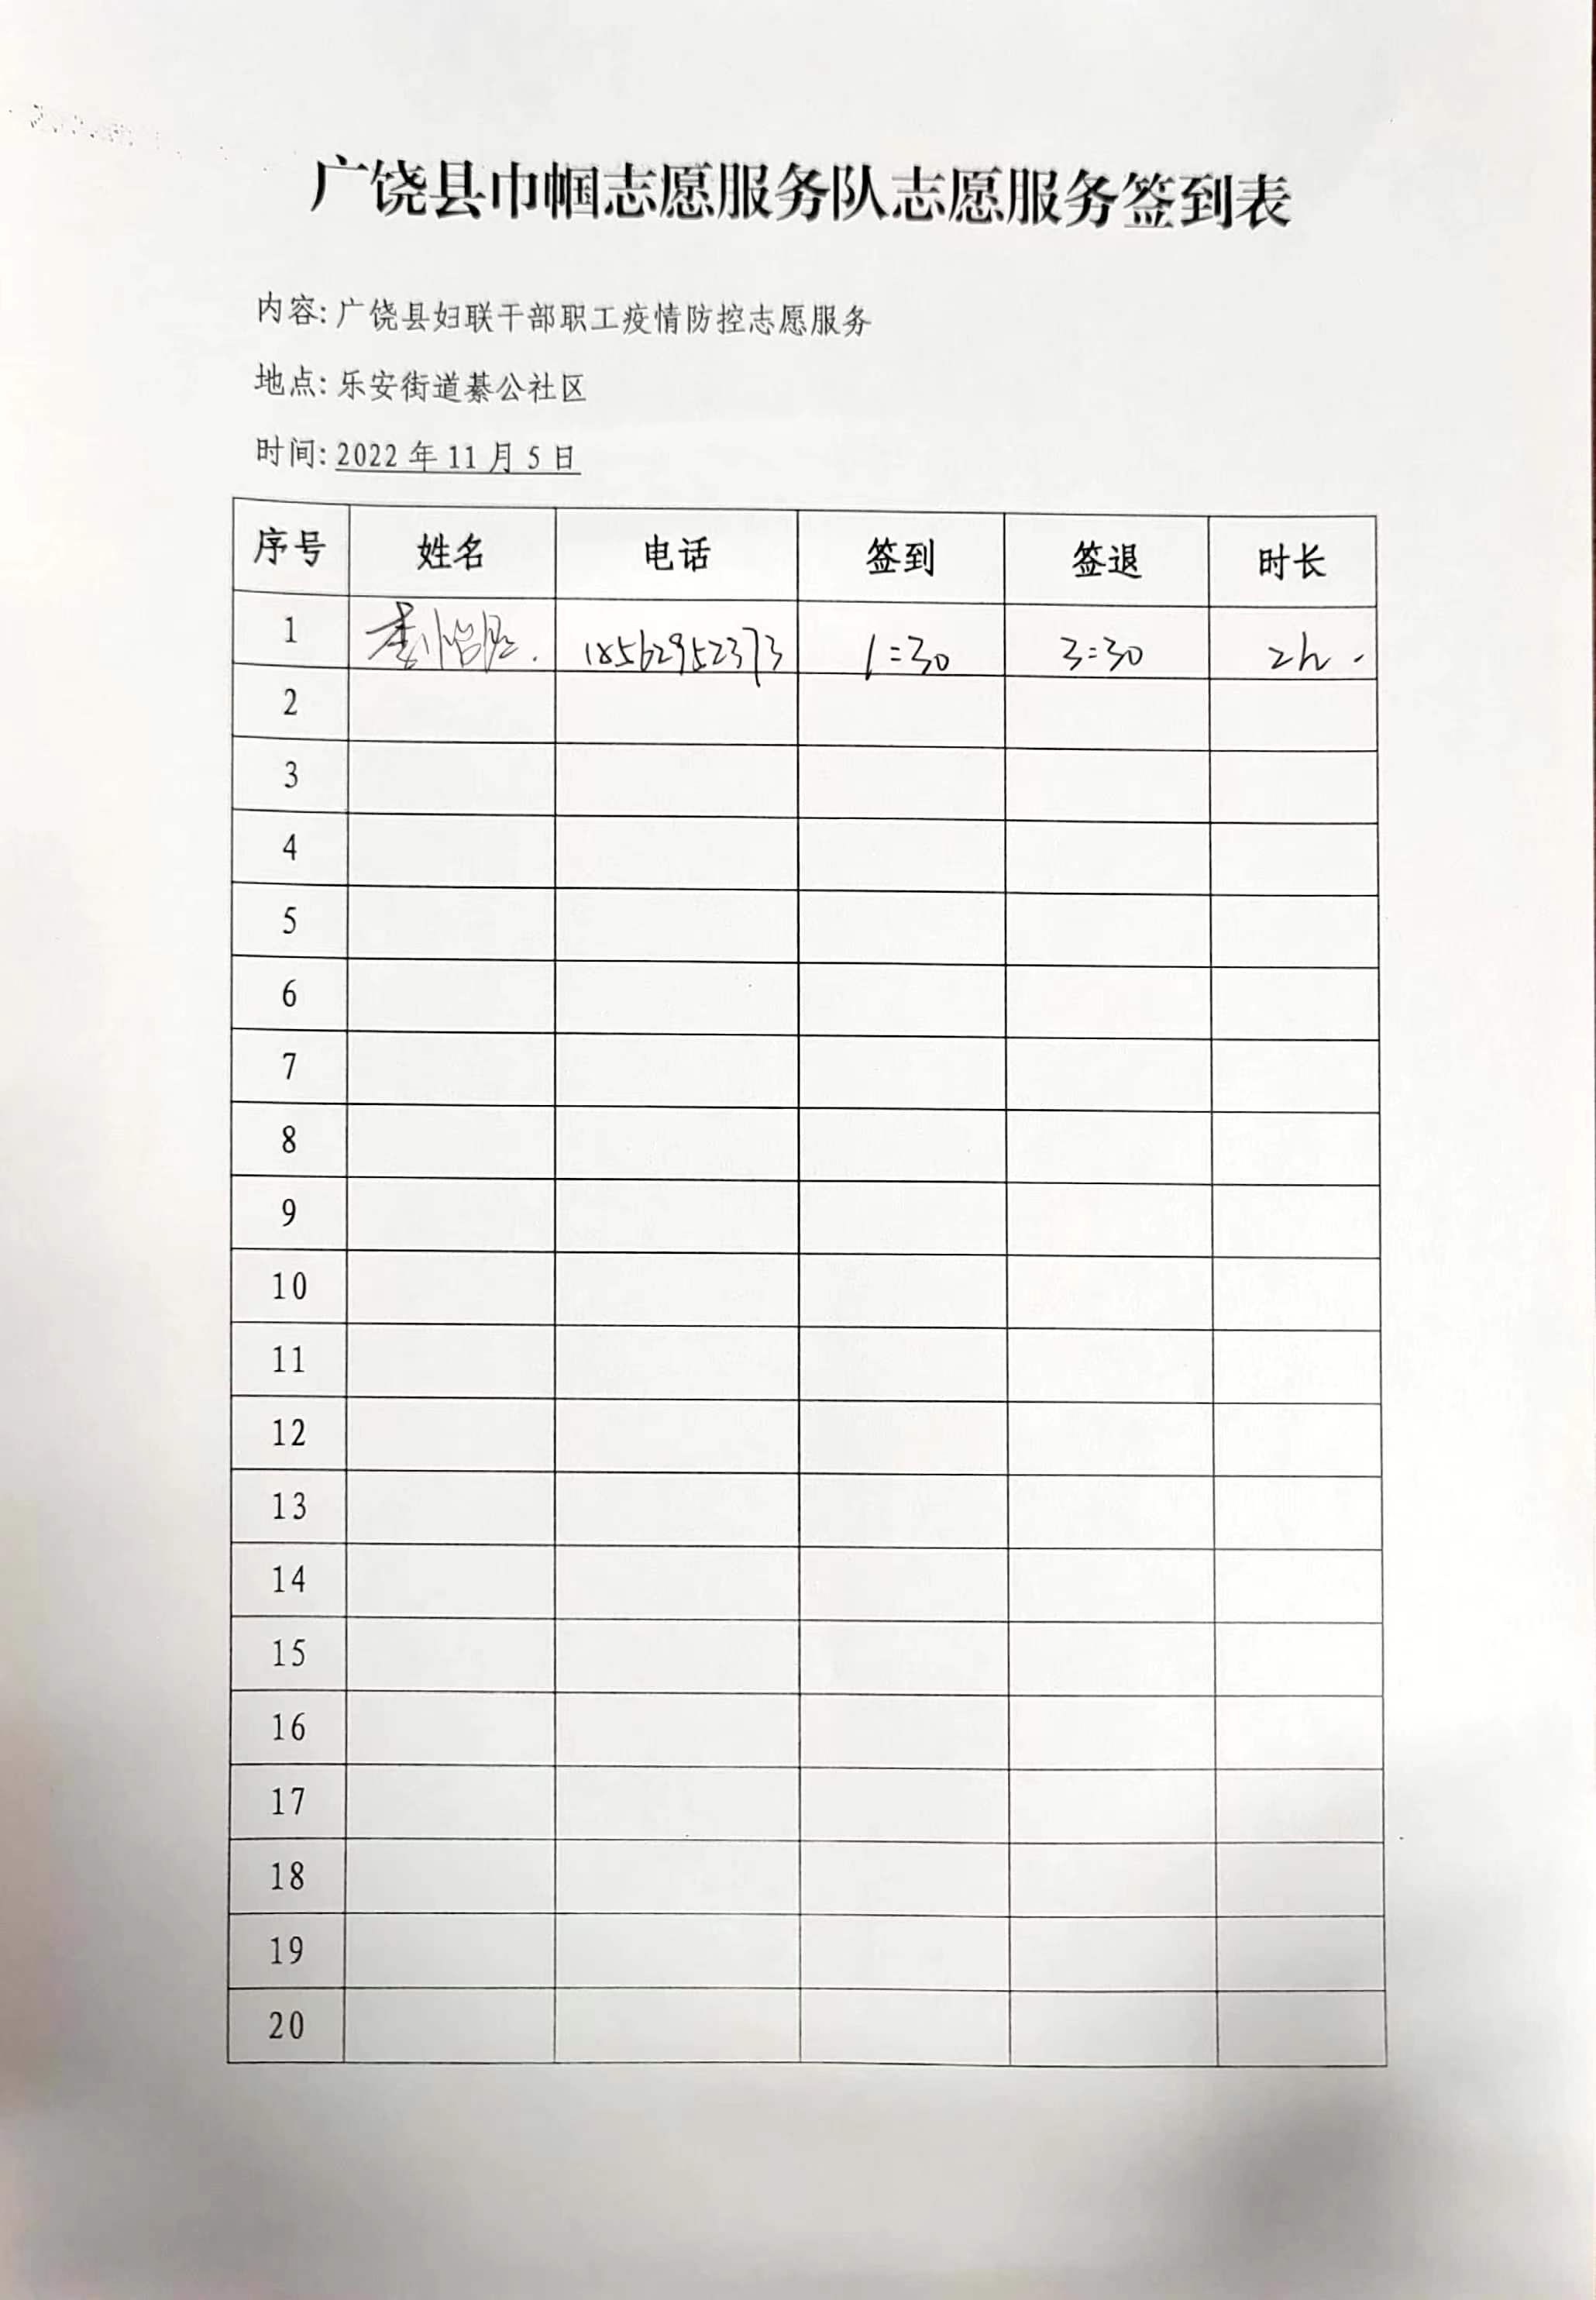 广饶县巾帼志愿服务队志愿服务签到表
内容: 广饶县妇联干部职工疫情防控志愿服务
地点: 乐安街道綦公社区
时间: 2022 年 11 月 5 日
序号 姓名 电话 签到 签退 时长
1 18562952373 1:30 3:30 2h.
2
3
4
5
6
7
8
9
10
11
12
13
14
15
16
17
18
19
20